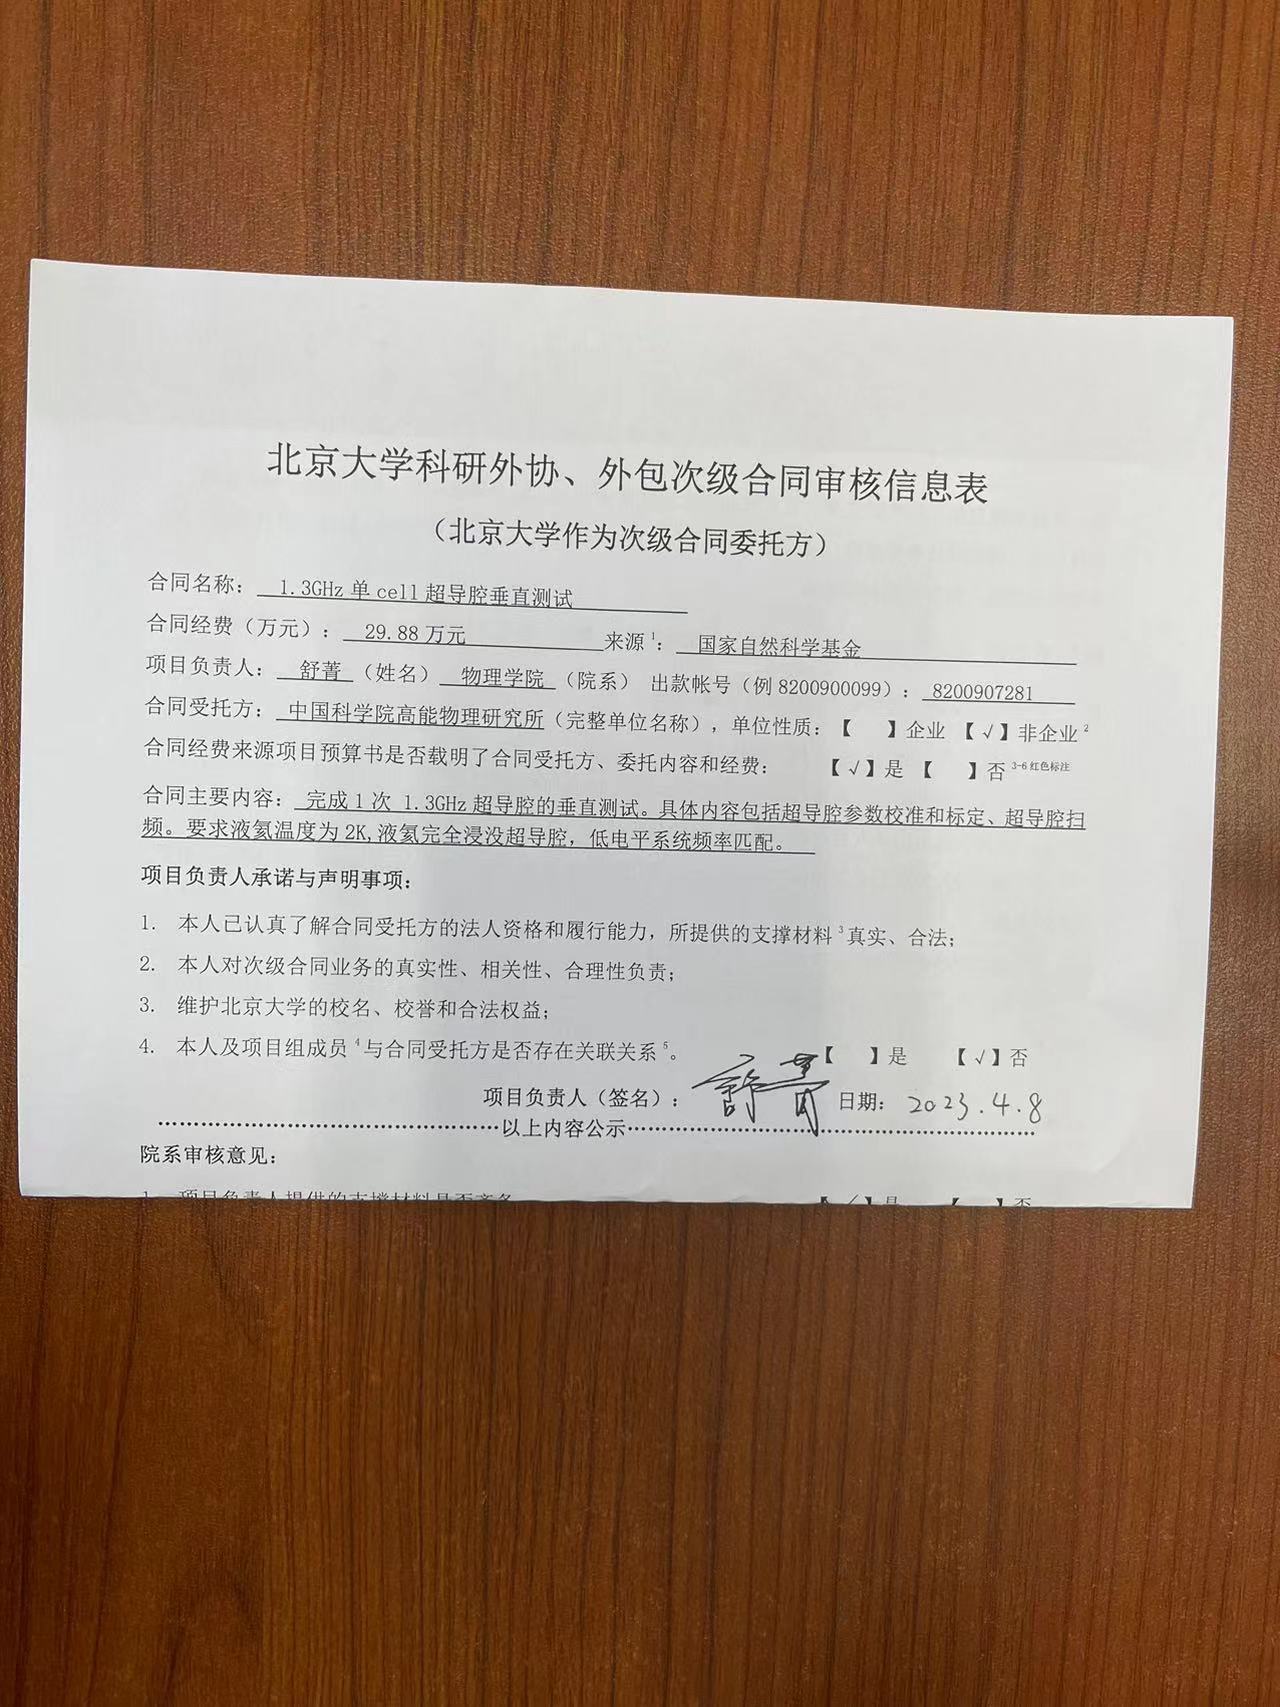 北京大学科研外协、外包次级合同审核信息表
（北京大学作为次级合同委托方）
合同名称： 1.3GHz 单 cell 超导腔垂直测试
合同经费（万元）： 29.88 万元 来源1： 国家自然科学基金
项目负责人： 舒菁 （姓名） 物理学院 （院系） 出款帐号（例 8200900099）： 8200907281
合同受托方： 中国科学院高能物理研究所（完整单位名称），单位性质：【 】企业 【√】非企业2
合同经费来源项目预算书是否载明了合同受托方、委托内容和经费： 【√】是 【 】否 3-6 红色标注
合同主要内容： 完成 1 次 1.3GHz 超导腔的垂直测试。具体内容包括超导腔参数校准和标定、超导腔扫
频。要求液氦温度为 2K,液氦完全浸没超导腔，低电平系统频率匹配。
项目负责人承诺与声明事项：
1. 本人已认真了解合同受托方的法人资格和履行能力，所提供的支撑材料3真实、合法；
2. 本人对次级合同业务的真实性、相关性、合理性负责；
3. 维护北京大学的校名、校誉和合法权益；
4. 本人及项目组成员4与合同受托方是否存在关联关系5。 【 】是 【√】否
项目负责人（签名）： 舒菁 日期： 2023.4.8
……………………………………………以上内容公示……………………………………………………
院系审核意见：
1. 项目负责人提供的支撑材料是否齐备 【√】是 【 】否